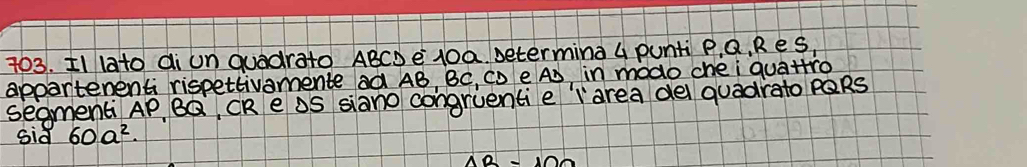 703. Il lato di un quadrato ABCD è 10a. Determina 4 punti P, Q, R e S,
appartenenti rispettivamente ad AB, BC, CD e AD in modo che i quattro
segmenti AP, BQ, CR e DS siano congruenti e l'area del quadrato PQRS
sia 60a².
AB = 10a